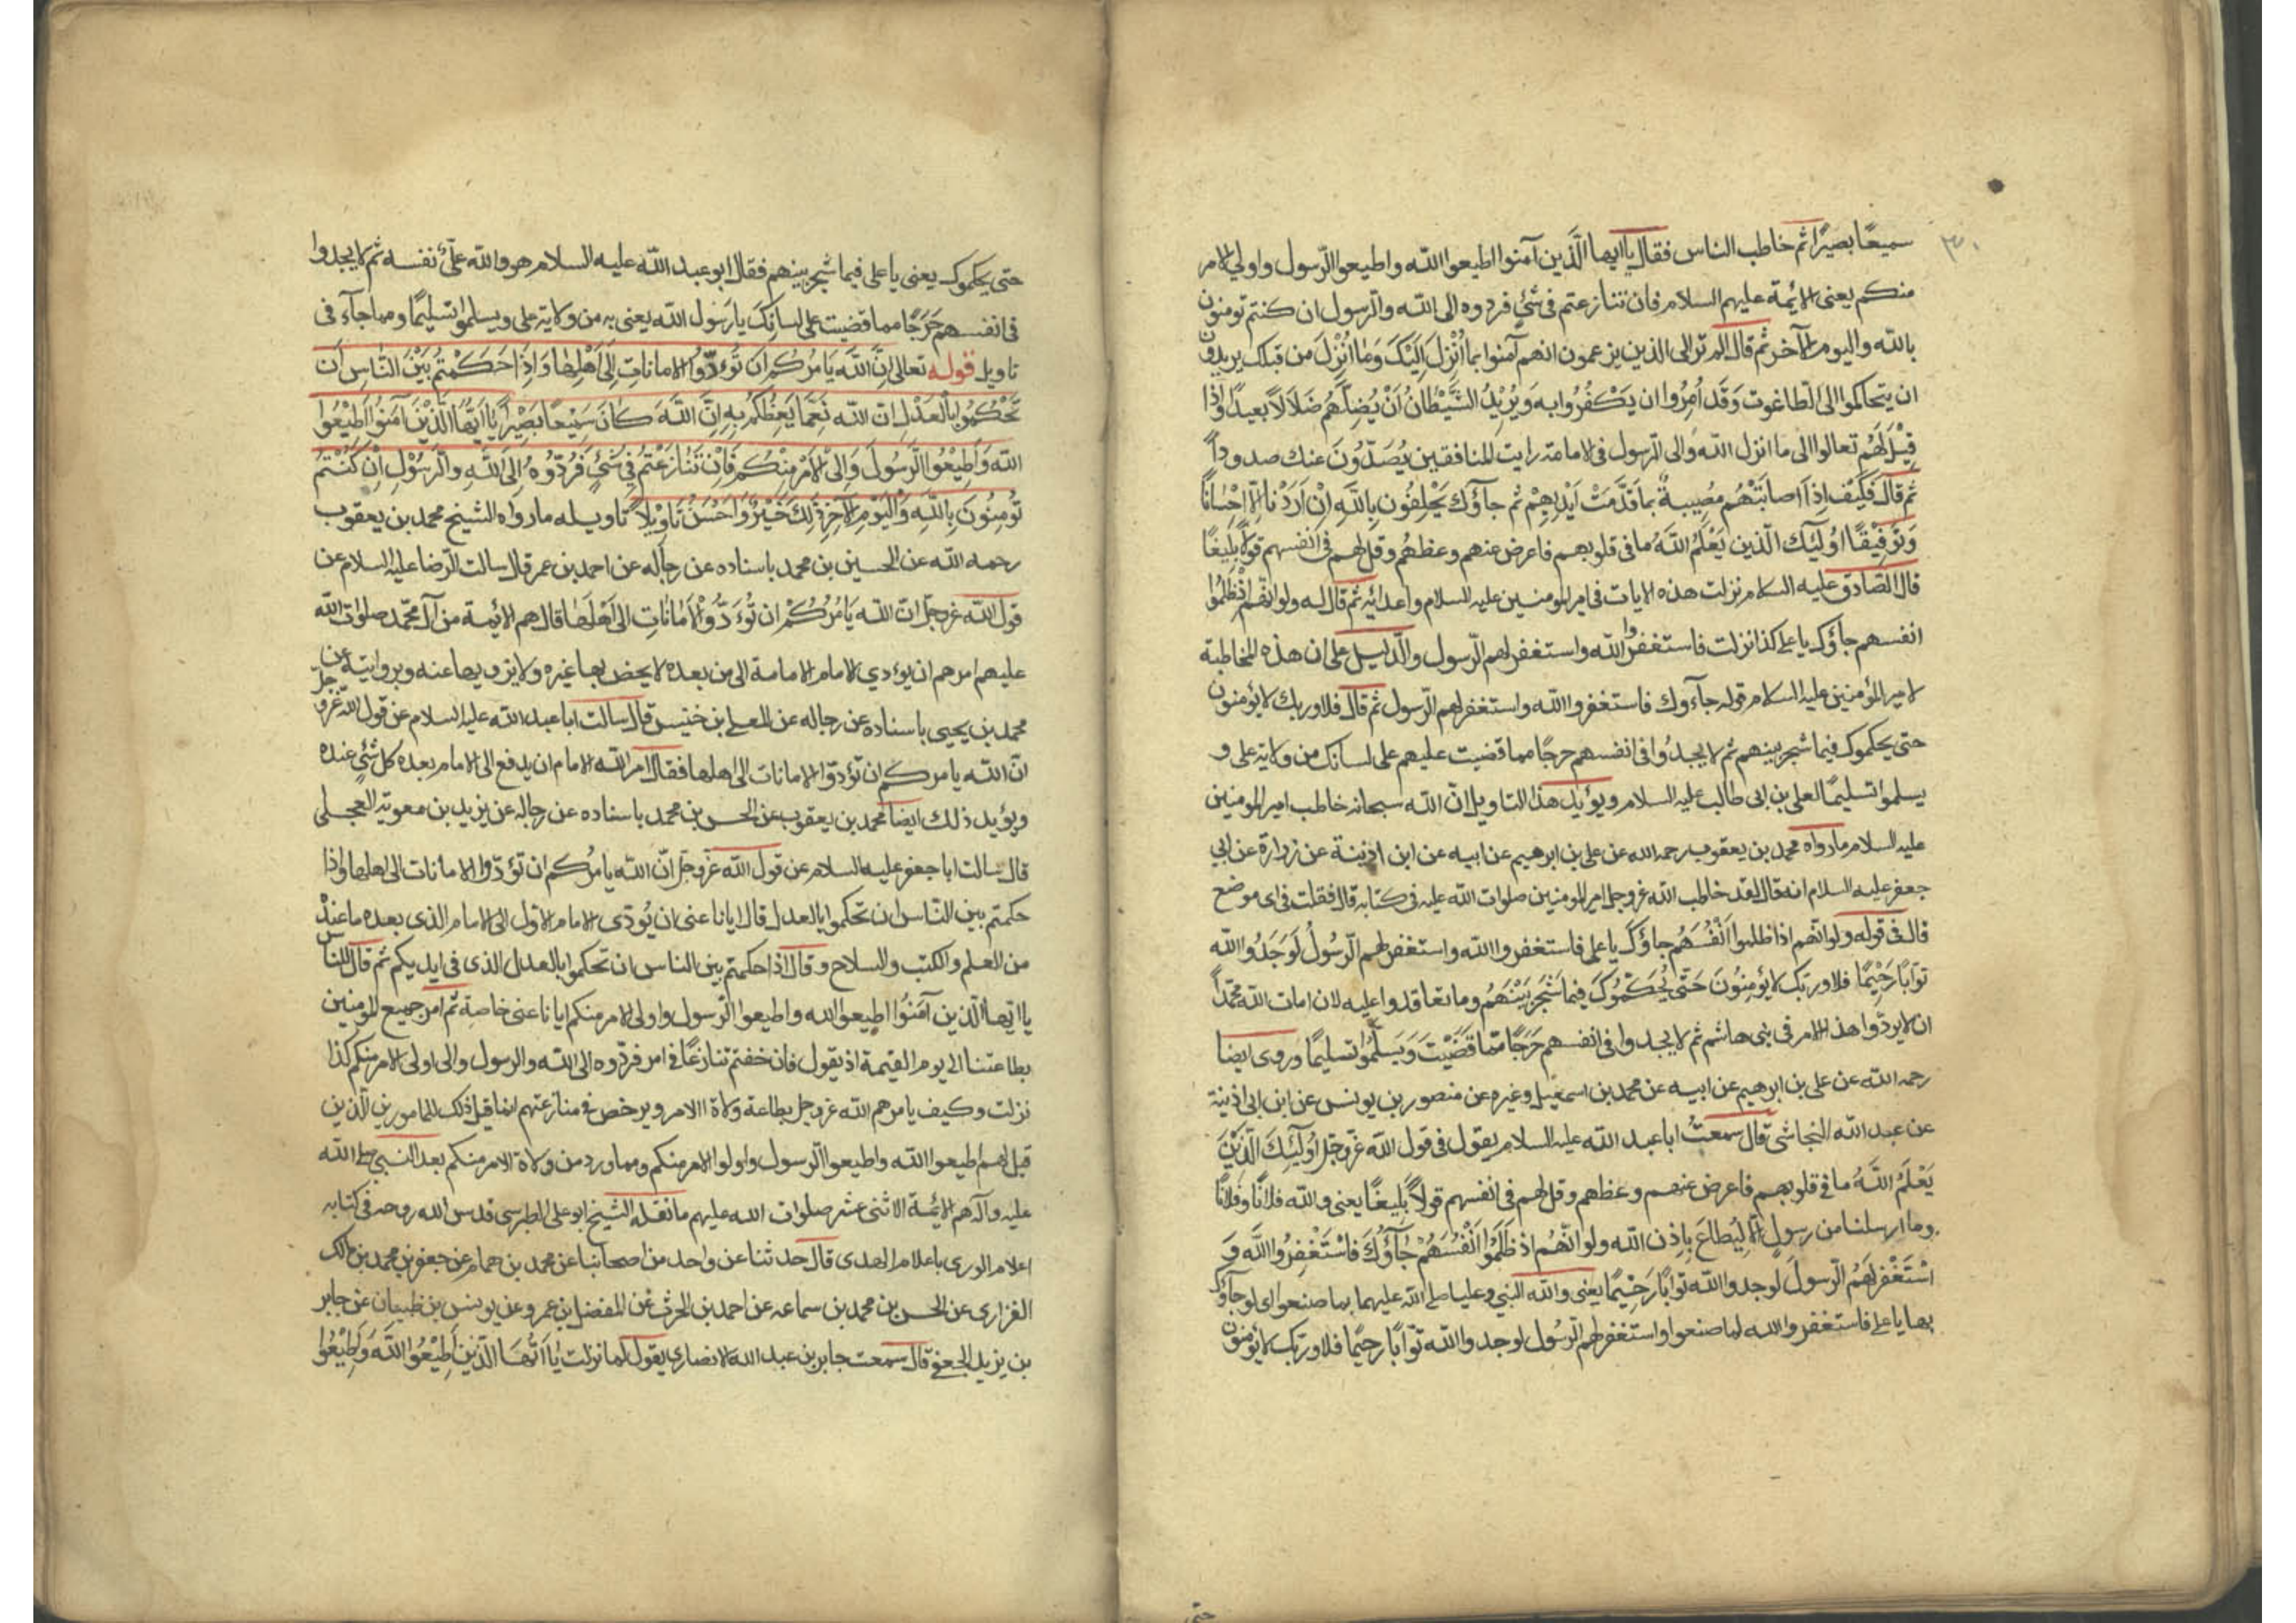 سميعًا بصيرًا ثم خاطب الناس فقال يا ايها الَّذين آمنوا اطيعوا الله واطيعوا الرّسول واولي الامر
منكم يعنى الائمة عليهم السلام فان تنازعتم فى شئ فردوه الى الله والرسول ان كنتم تومنون
بالله واليوم الآخر ثم قال الم تر الى الذين يزعمون انهم آمنوا بما اُنْزِلَ اِلَيْكَ وَمٰا اُنْزِلَ من قبلك يريدون
ان يتحاكموا الى الطاغوت وَقَد اُمِرُوا ان يَكْفُرُوا به وَيُرِيْدُ الشَّيْطٰانُ اَنْ يُضِلَّهُم ضَلَالًا بعيدًا وَاِذا
قِيْلَ لَهُم تعالوا الى ما انزل الله والى الرسول فى الامامة رايت المنافقين يُصَدّوُنَ عنك صدودًا
ثم قال فَكَيْفَ اِذا اصابَتْهُم مصيبةٌ بما قَدَّمَتْ اَيْدِيهِمْ ثم جآؤك يَحْلِفُون بِاللّهِ اِنْ اَرَدْنا اِلّا اِحْسٰانًا
وَتَوْفِيْقًا اوُلٰئِك الَّذين يَعْلَمُ اللّهُ ما فى قلوبهم فاعرض عنهم وعظهُم وقل لهم فى انفسهم قولًا بليغًا
قال الصّادق عليه السلام نزلت هذه الايات فى امير المومنين عليه السلام واعدائه ثم قال له ولو انّهم اذ ظَلَمُوا
انفسهم جآؤك يا على كذا نزلت فاستغفروا الله واستغفر لهم الرّسول والدليل على ان هذه المخاطبة
لامير المؤمنين عليه السلام قوله جآءوك فاستغفروا الله واستغفر لهم الرّسول ثم قال فلا وربك لا يؤمنون
حتى يحكموك فيما شجر بينهم ثم لا يجدُوا فى انفسهم حرجًا مما قضيت عليهم على لسانك من ولاية على و
يسلموا تسليمًا لعلى بن ابى طالب عليه السلام ويؤيد هذا التاويل انّ الله سبحانه خاطب امير المومنين
عليه السلام ما رواه محمد بن يعقوب رحمه الله عن على بن ابرهيم عن ابيه عن ابن اذينة عن زرارة عن ابي
جعفر عليه السلام انه قال لقد خاطب الله عز وجل امير المومنين صلوات الله عليه فى كتابه قال فقلت فى اى موضع
قال فى قوله ولو انّهم اذ ظلموا اَنْفُسَهُم جاؤكَ يا على فاستغفروا الله واستغفر لهم الرّسولُ لَوَجَدُوا الله
توّابًا رَحِيْمًا فلا وربّك لا يُؤمِنُونَ حَتّى يُحَكِّمُوكَ فِيما شَجَرَ بَيْنَهُم وما تعاقدوا عليه لان امات الله محمّدًا
ان لا يردّوا هذا الامر فى بنى هاشم ثم لا يجدوا فى انفسهم حَرَجًا ممّا قَضَيْتَ وَيسَلّمُوا تسليمًا وروى ايضا
رحمه الله عن على بن ابرهيم عن ابيه عن محمد بن اسمعيل وغيره عن منصور بن يونس عن ابن ابى اذينة
عن عبد الله النجاشى قال سمعتُ ابا عبد الله عليه السلام يقول فى قول الله عزّ وجلّ اوُلٰئِكَ الّذِيْنَ
يَعْلَمُ اللّهُ ما فى قلوبهم فاعرض عنهم وعظهم وقل لهم فى انفسهم قولًا بليغًا يعنى والله فلانًا وفلانًا
وما ارسلنا من رسول الّا لِيُطاعَ بِاِذن الله ولو انّهُم اذ ظَلَمُوا اَنْفُسَهُمْ جٰآؤُكَ فَاسْتَغْفِرُوا اللّهَ وَ
اسْتَغْفَرَ لَهُمُ الرّسولَ لوجدوا الله توّابًا رَحِيْمًا يعنى والله النبي وعليا صلى الله عليهما بما صنعوا اى لو جآؤك
بها يا على فاستغفروا الله لما صنعوا واستغفر لهم الرّسُول لوجدوا الله توّابًا رحيمًا فلا وربّك لا يؤمنون
حتى
حتى يحكموك يعنى يا على فيما شجر بينهم فقال ابو عبد الله عليه السلام هو والله علىّ نفسه ثم لا يجدوا
فى انفسهم حَرَجًا مما قضيت على لسانك يا رسول الله يعنى به من ولاية على ويسلموا تسليمًا ومما جآء فى
تاويل قوله تعالى اِنَّ اللّهَ يَامُرُكُم ان تُؤدّوُا الامانات اِلٰى اَهْلِهٰا وَاِذٰا حَكَمْتُم بَيْنَ النّاس اَن
تَحْكُمُوا بِالْعَدْلِ انّ اللّه نِعِمّٰا يَعِظُكُم بِهِ اِنَّ اللّهَ كٰانَ سَمِيْعًا بَصِيْرًا يٰا اَيُّهٰا الّذيْنَ آمَنُوا اَطِيْعُوا
اللّه وَاَطِيْعُوا الرّسُولَ وَاِلى الْاَمْرِ مِنْكُم فَاِنْ تَنٰازَعْتُم فِى شَئٍ فَرُدّوُهُ اِلَى اللّهِ والرّسُوْلِ اِنْ كُنْتُمْ
تُومِنُونَ بِاللّهِ وَالْيَوْمِ الآخِرِ ذٰلِكَ خَيْرٌ وَاحْسَنُ تَاوِيْلًا تاويله ما رواه الشيخ محمد بن يعقوب
رحمه الله عن الحسين بن محمد باسناده عن رجاله عن احمد بن عمر قال سالت الرّضا عليه السلام عن
قول الله عز وجل انّ اللّه يَامُرُكُمْ ان تُؤَدّوُا الْاَمٰانٰاتِ الى اَهْلِهٰا قال هم الائيمة من آل محمّد صلوات الله
عليهم امرهم ان يؤدي الامام الامامة الى من بعده لا يخص بها غيره ولا يزويها عنه وبروايته عن
محمد بن يحيى باسناده عن رجاله عن المعلى بن خنيس قال سالت ابا عبد الله عليه السلام عن قول الله عزّ وجلّ
انّ اللّه يامركم ان تؤدوّا الامانات الى اهلها فقال امر الله الامام ان يدفع الى الامام بعده كل شئ عنده
ويؤيد ذلك ايضا محمد بن يعقوب عن الحسن بن محمد باسناده عن رجاله عن يزيد بن معوية العجلى
قال سالت ابا جعفر عليه السلام عن قول الله عزّ وجلّ انّ اللّه يامُركم ان تؤدّوا الامانات الى اهلها واذا
حكمتم بين النّاس ان تحكموا بالعدل قال ايانا عنى ان يُودّى الامام الاول الى الامام الذى بعده ما عنده
من العلم والكتب والسلاح وقال اذا حكمتم بين الناس ان تحكموا بالعدل الذى فى ايديكم ثم قال للناس
يا ايّها الّذين آمَنُوا اطيعوا الله واطيعوا الرّسول واولى الامر منكم ايانا عنى خاصة ثم امر جميع المومنين
بطاعتنا الى يوم القيمة اذ يقول فان خفتم تنازعًا فى امر فردّوه الى الله والرسول والى اولى الامر منكم كذا
نزلت وكيف يامرهم الله عز وجل بطاعة ولاة الامر ويرخص فى منازعتهم انما قيل ذلك للمامورين الّذين
قيل لهم اطيعوا الله واطيعوا الرّسول واولوا الامر منكم ومما ورد من ولاة الامر منكم بعد النبى صلى الله
عليه وآله هم الائيمة الاثنى عشر صلوات الله عليهم ما نقله الشيخ ابو على الطبرسى قدس الله روحه فى كتابه
اعلام الورى باعلام الهدى قال حدثنا عن واحد من اصحابنا عن محمد بن همام عن جعفر بن محمد بن مالك
الفزارى عن الحسن بن محمد بن سماعه عن احمد بن الحرث عن المفضل بن عمر وعن يونس بن ظبيان عن جابر
بن يزيد الجعفى قال سمعت جابر بن عبد الله الانصارى يقول لما نزلت يٰا اَيُّهَا الّذِينَ اَطِيْعُوا اللّهَ وَاَطِيْعُوا